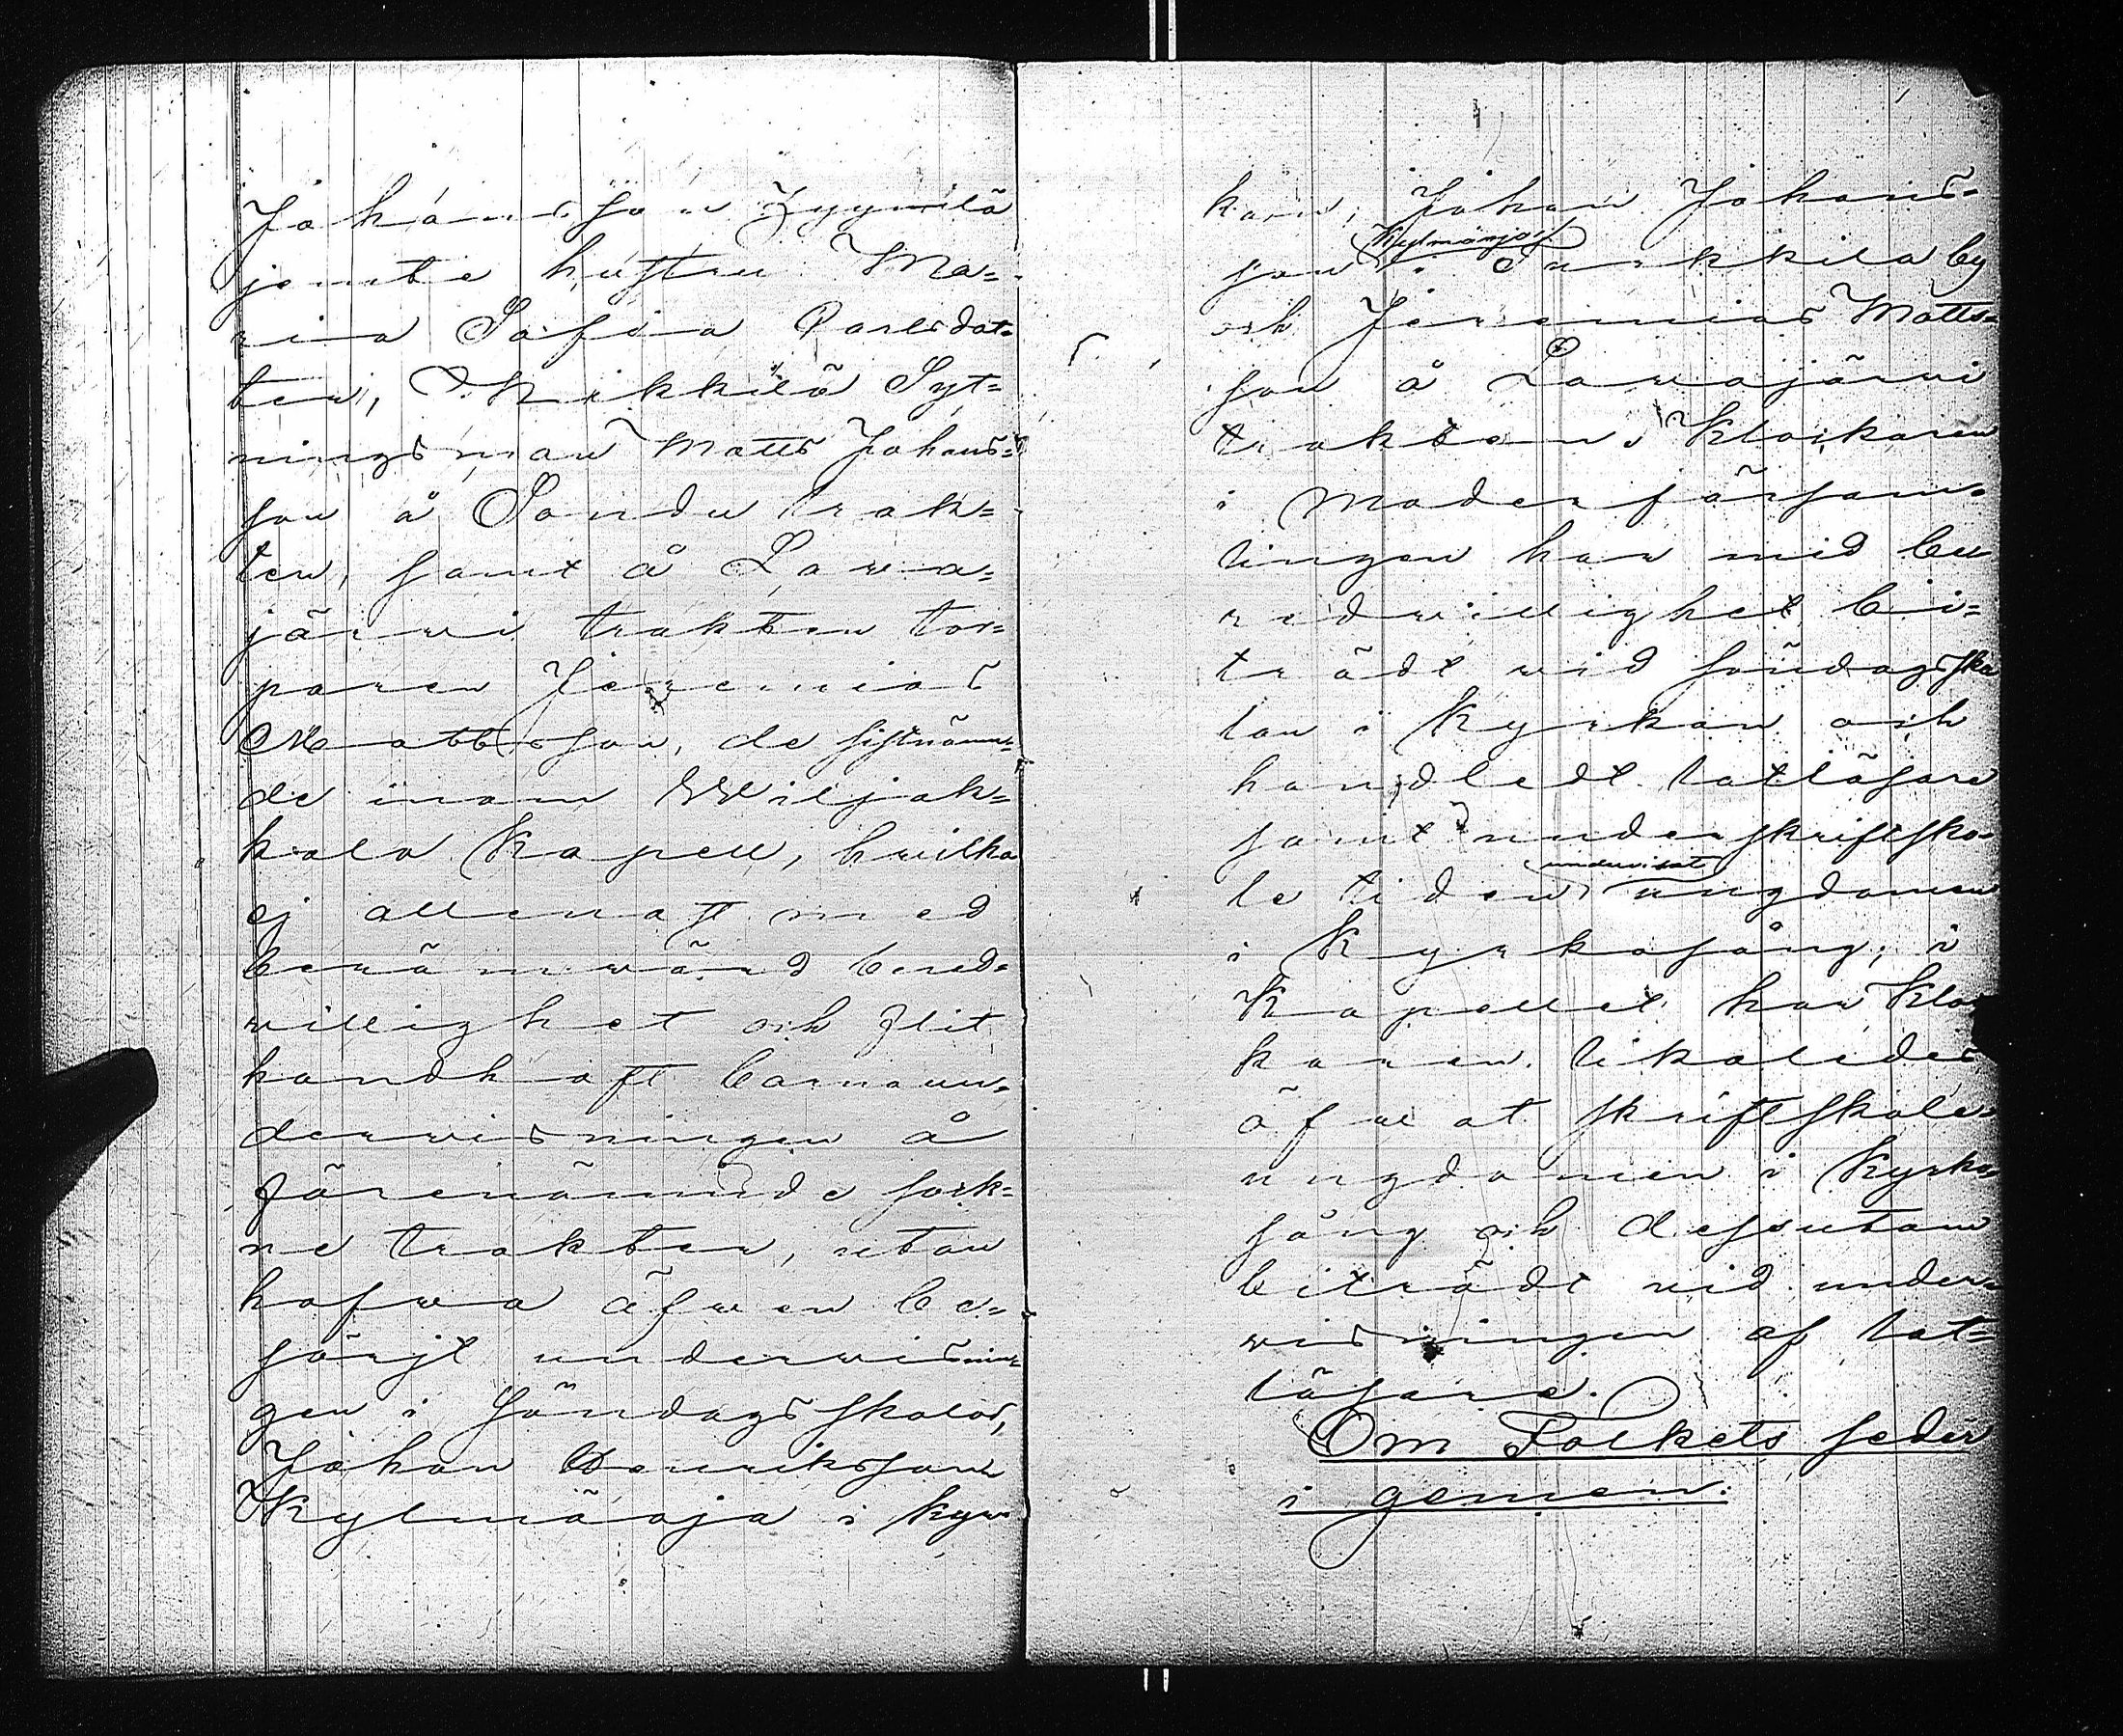 Johansson Fyynilä
jemte hustru Ma=
ria Sofia Carlsdot=
ter, Mikkilä Syt=
ningsman Matts Johans=
son å Sandu trak=
ten, samt å Lava=
järvi trakten tor=
paren Jeremias
Mattsson, de sistnämn=
de inom Wiljak=
kala Kapell, hvilka
ej allenast med
berömvärd bered=
villighet och flit
handhaft barnaun=
dervisningen å
förenämnde sock=
ne trakter, utan
hafva äfven be=
sörjt undervisnin=
gen i Söndagsskolor,
Johan Henriksson
Kylmäoja i kyr=
kan, Johan Johans=
son Kylmäoja i Turkkila by
och Jeremias Matts=
son å Lavajärvi
trakten. Klockaren
i Moderförsam=
lingen har med be
redvillighet bi=
trädt vid söndagssko
lan i Kyrkan och
handledt latläsare
samt under skriftsko=
le tiden undervisat ungdomen
i Kyrkosång; i
Kapellet har Kloc
karen likaledes
öfvat skriftskole
ungdomen i Kyrko=
sång och dessutom
biträdt vid under=
visningen af lat=
läsare.
Om Folkets seder
i gemen.